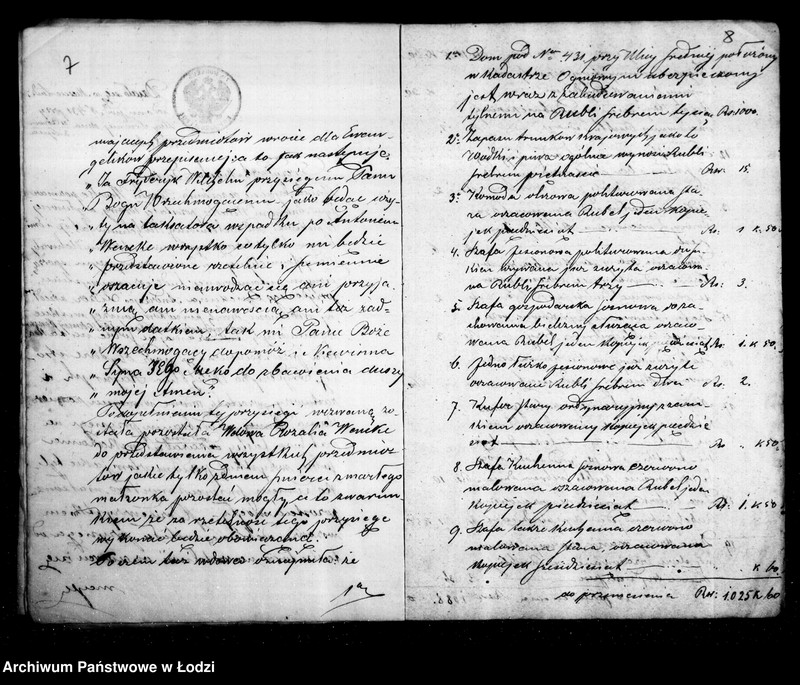 7
mających przedmiotów wrocie dla Ewan-
gelików przepisanej a to jak następuje:
„Ja Fryderyk Wilhelm przysięgam Panu
Bogu Wszechmogącemu jako będąc uży-
„ty na taksatora w spadku po Antonim
„Wencke wszystko co tylko mi będzie
„przedstawione rzetelnie i sumiennie
„oszacuję nieuwodząc się ani przyja-
„źnią, ani nienawiścią, ani też żad-
„nym datkiem, tak mi Panie Boże
„Wszechmogący dopomóż i Niewinna
„Syna Jego Męko do zbawienia duszy
„mojej Amen".
Po dopełnieniu tej przysięgi wezwaną zo-
stała pozostała Wdowa Rozalia Wencke
do przedstawienia wszystkich przedmio-
tów jakie tylko po śmierci zmarłego
małżonka pozostać mogły a to z warun-
kiem że na rzetelność tego przysięgę
wykonać będzie obowiązaną.
Poczem taż wdowa oznajmiła: że
8
1. Dom pod Nrm 431 przy Ulicy Średniej położony
w Kadastrze Ogniowym ubezpieczony
jest wraz z zabudowaniami
tylnemi na Rubli srebrem tysiąc Rs. 1000.
2. Zapas trunków krajowych jako to
Wódki i piwa ogólna wynosi Rubli
srebrem piętnaście Rs. 15.
3. Komoda olszowa politurowana sta-
ra oszacowana Rubel jeden kopie-
jek pięćdziesiąt Rs. 1 K. 50.
4. Szafa Jesionowa politurowana
już zużyta oszacowa-
na Rubli srebrem trzy Rs. 3.
5. Szafa gospodarska sosnowa do za-
chowania bielizny służąca oszaco-
wana Rubel jeden kopiejek pięćdziesiąt Rs. 1. K 50.
6. Jedno łóżko jesionowe już zużyte
oszacowane Rubli srebrem dwa Rs. 2.
7. Kufer stary ordynaryjny z zam-
kiem oszacowany kopiejek pięćdzie-
siąt Rs. „ K 50.
8. Szafa Kuchenna sosnowa czerwono
malowana oszacowana Rubel jeden
kopiejek pięćdziesiąt Rs. 1. K 50
9. Szafa także kuchenna czerwono
malowana stara, oszacowana
kopiejek sześćdziesiąt „ K 60.
do przeniesienia Rs: 1025 K 60
Archiwum Państwowe w Łodzi